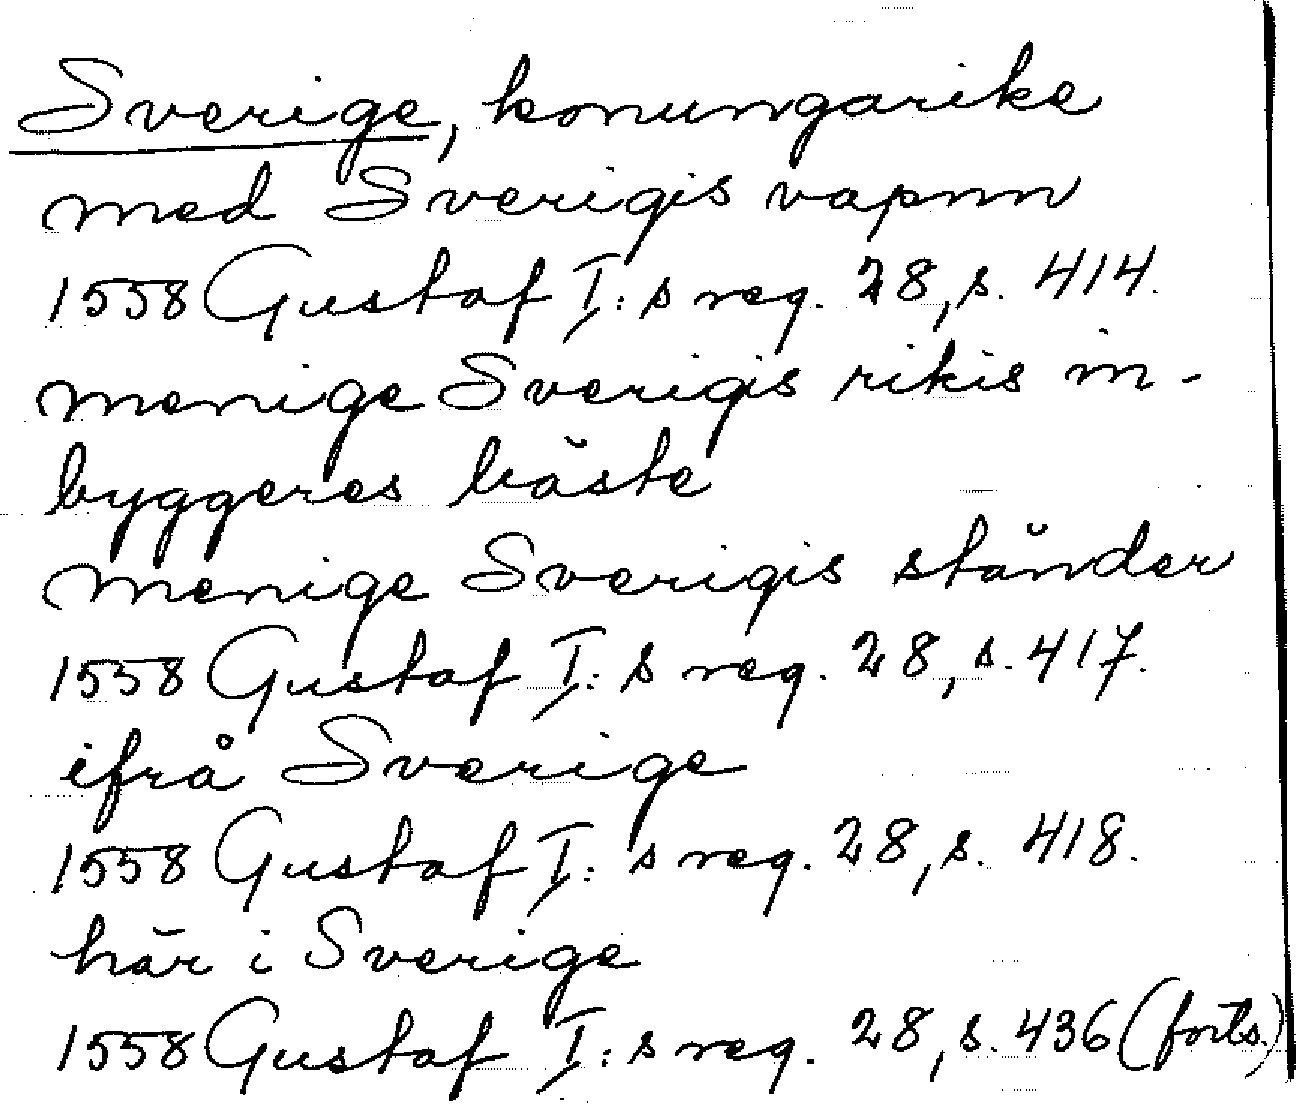 Sverige, konungarike
med Sverigis vapnn
1558 Gustaf I:s reg. 28, s. 414.
menige Sverigis rikis in-
byggeres bäste
menige Sverigis ständer
1558 Gustaf I:s reg. 28, s. 417.
ifrå Sverige
1558 Gustaf I:s reg. 28, s. 418.
här i Sverige
1558 Gustaf I:s reg. 28, s. 436 (forts.)